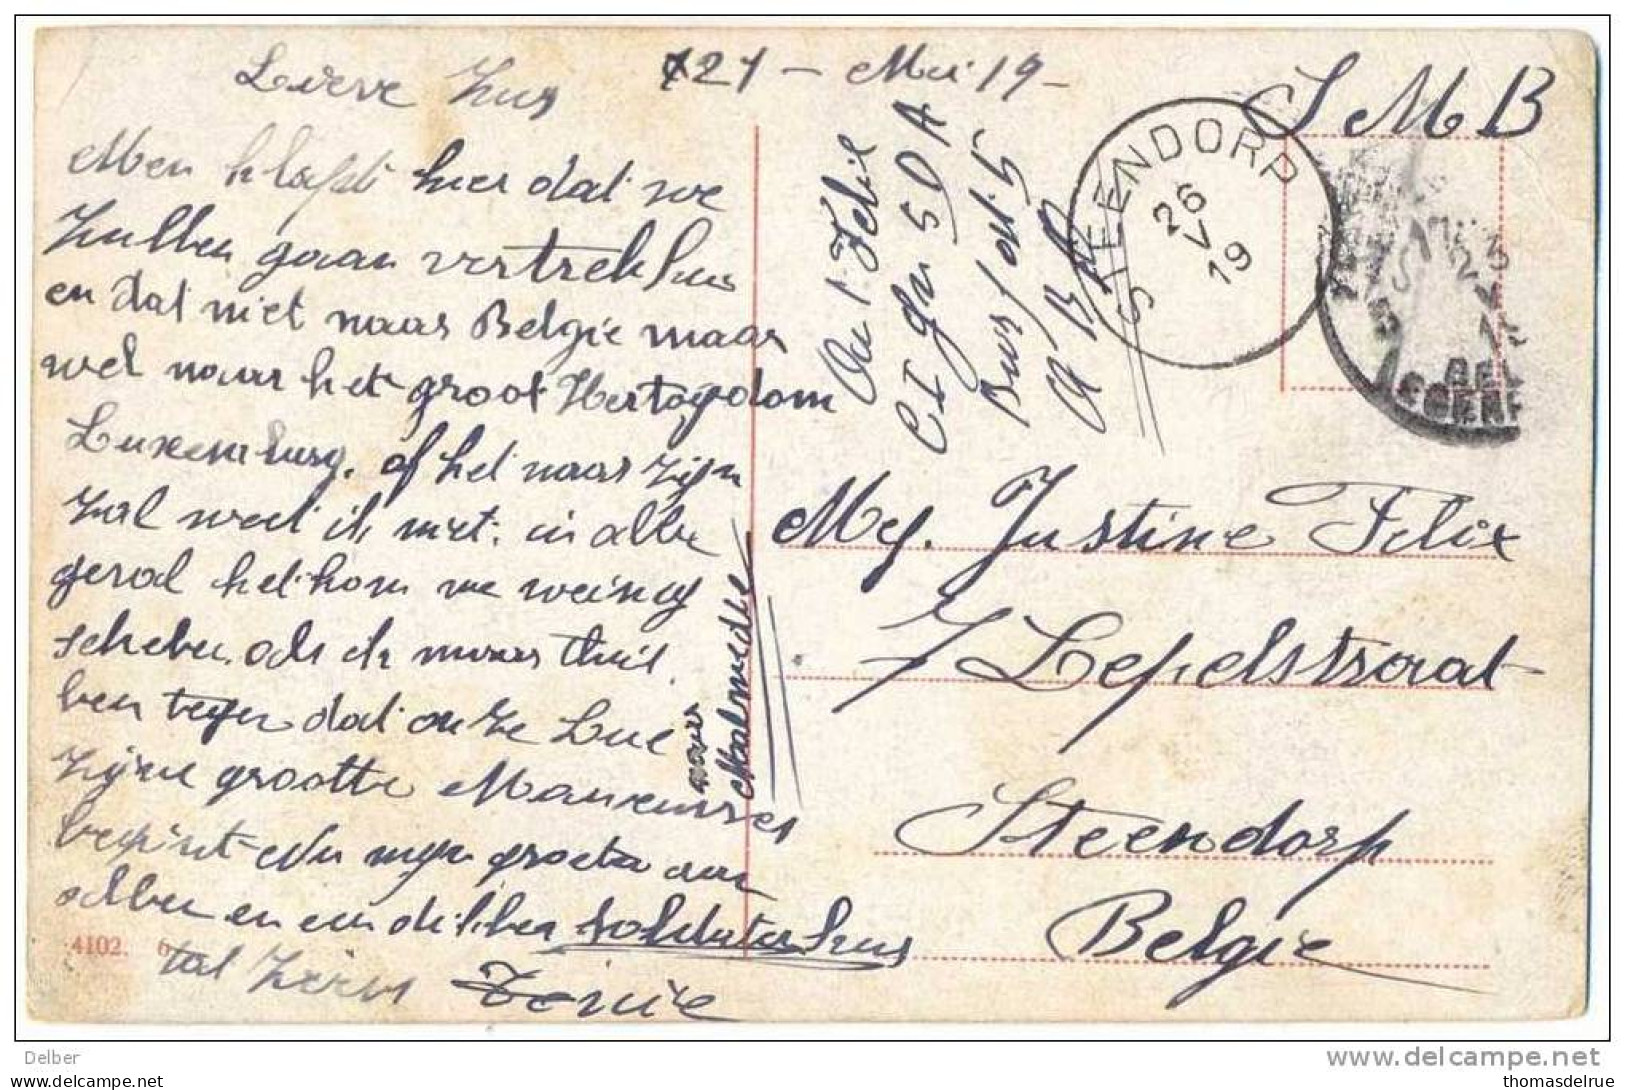 Lieve Zus
21 - Mei 19 -
S M B
Men klapt hier dat we
zullen gaan vertrekken
en dat niet naar Belgie maar
wel naar het groot Hertogdom
Luxemburg. of het waar zijn
zal weet ik niet. in alle
geval het kom me weinig
schelen. als ik maar thuis
ben tegen dat onze Lue
zijne grootte
begint Nu mijn groeten aan
allen en een dikken soldaten kus
tot ziens
naar
Malmedy
C I 50 A
A B
STEENDORP
26
V
19
Mej. Justine Felix
7 Lepelstraat
Steendorp
Belgie
4102. 6
Delber
www.delcampe.net
thomasdelrue